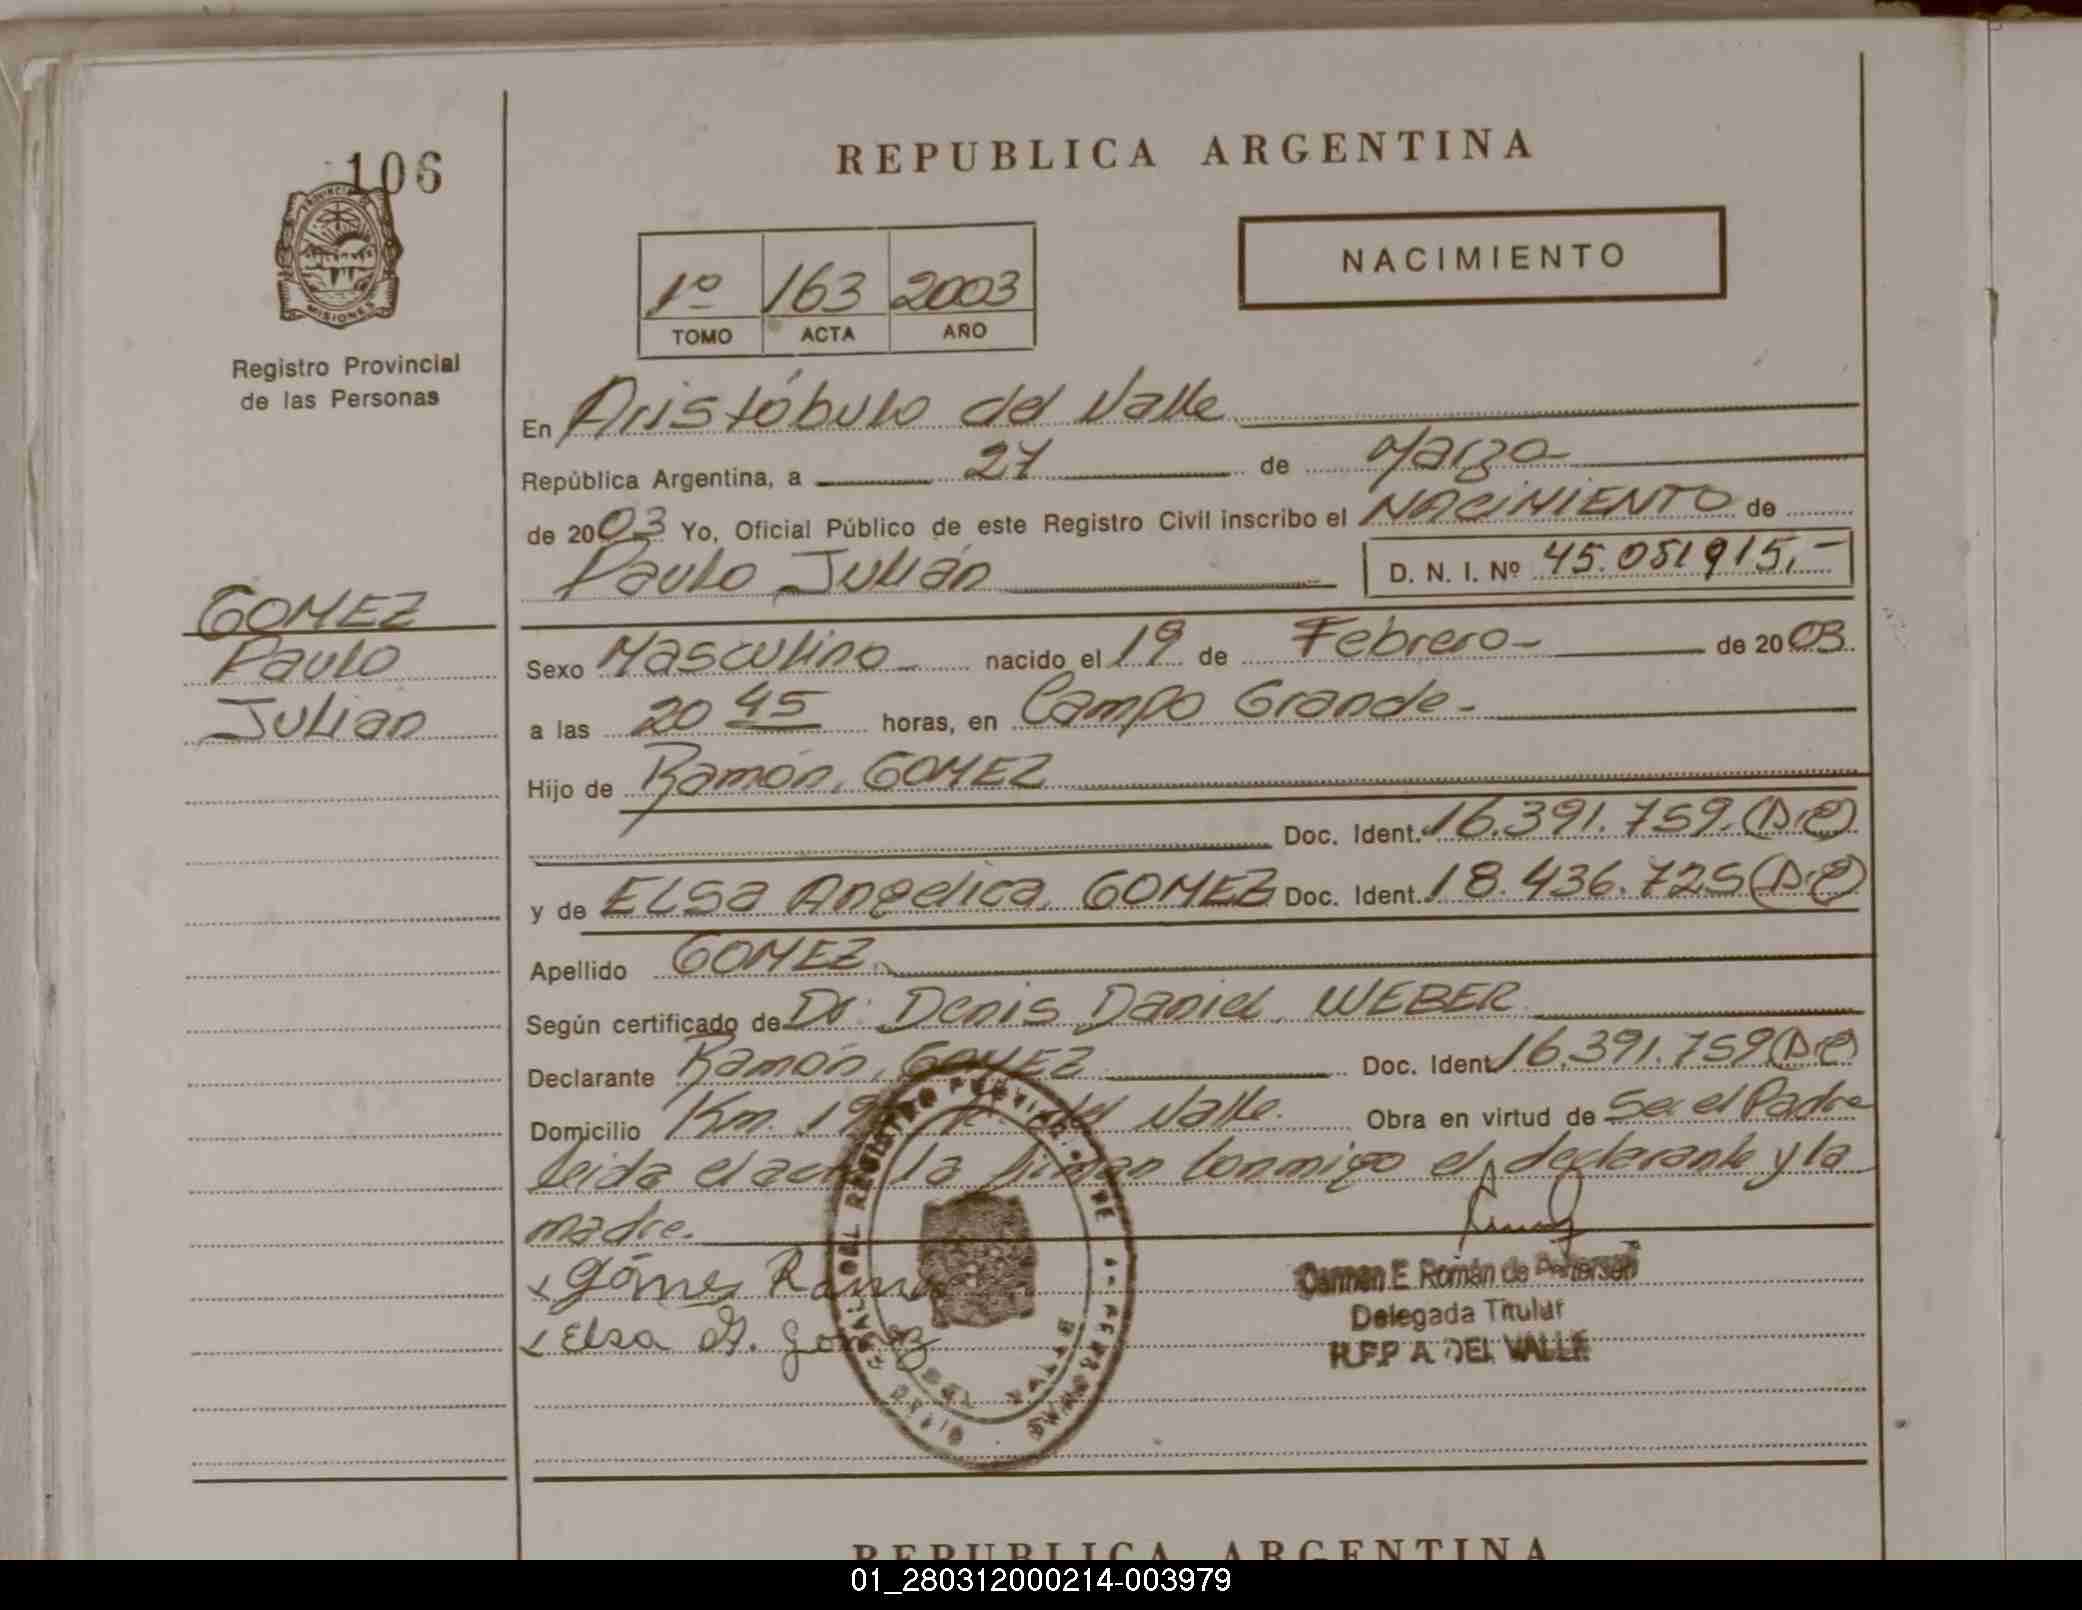 106
REPUBLICA ARGENTINA
PROVINCIA DE
MISIONES
Registro Provincial
de las Personas
1º 163 2003
TOMO ACTA AÑO
NACIMIENTO
En Aristóbulo del Valle
República Argentina, a 27 de Marzo
de 2003 Yo, Oficial Público de este Registro Civil inscribo el NACIMIENTO de
Paulo Julián D. N. I. Nº 45.051915,-
GOMEZ
Paulo
Julian
Sexo Masculino nacido el 19 de Febrero de 2003
a las 20 45 horas, en Campo Grande.
Hijo de Ramón, GOMEZ
Doc. Ident. 16.391.759
y de ELSa Angelica, GOMEZ Doc. Ident. 18.436.725
Apellido GOMEZ
Según certificado de Dr. Denis Daniel WEBER
Declarante Ramón, GOMEZ Doc. Ident 16.391.759
Domicilio Km. del Valle. Obra en virtud de Ser el Padre
leida el acta la firman conmigo el declarante y la
madre.
Gómez Ramon
Elsa A. Gomez
Carmen E. Román de
Delegada Titular
R.P.P A DEL VALLE
REPUBLICA ARGENTINA
01_280312000214-003979